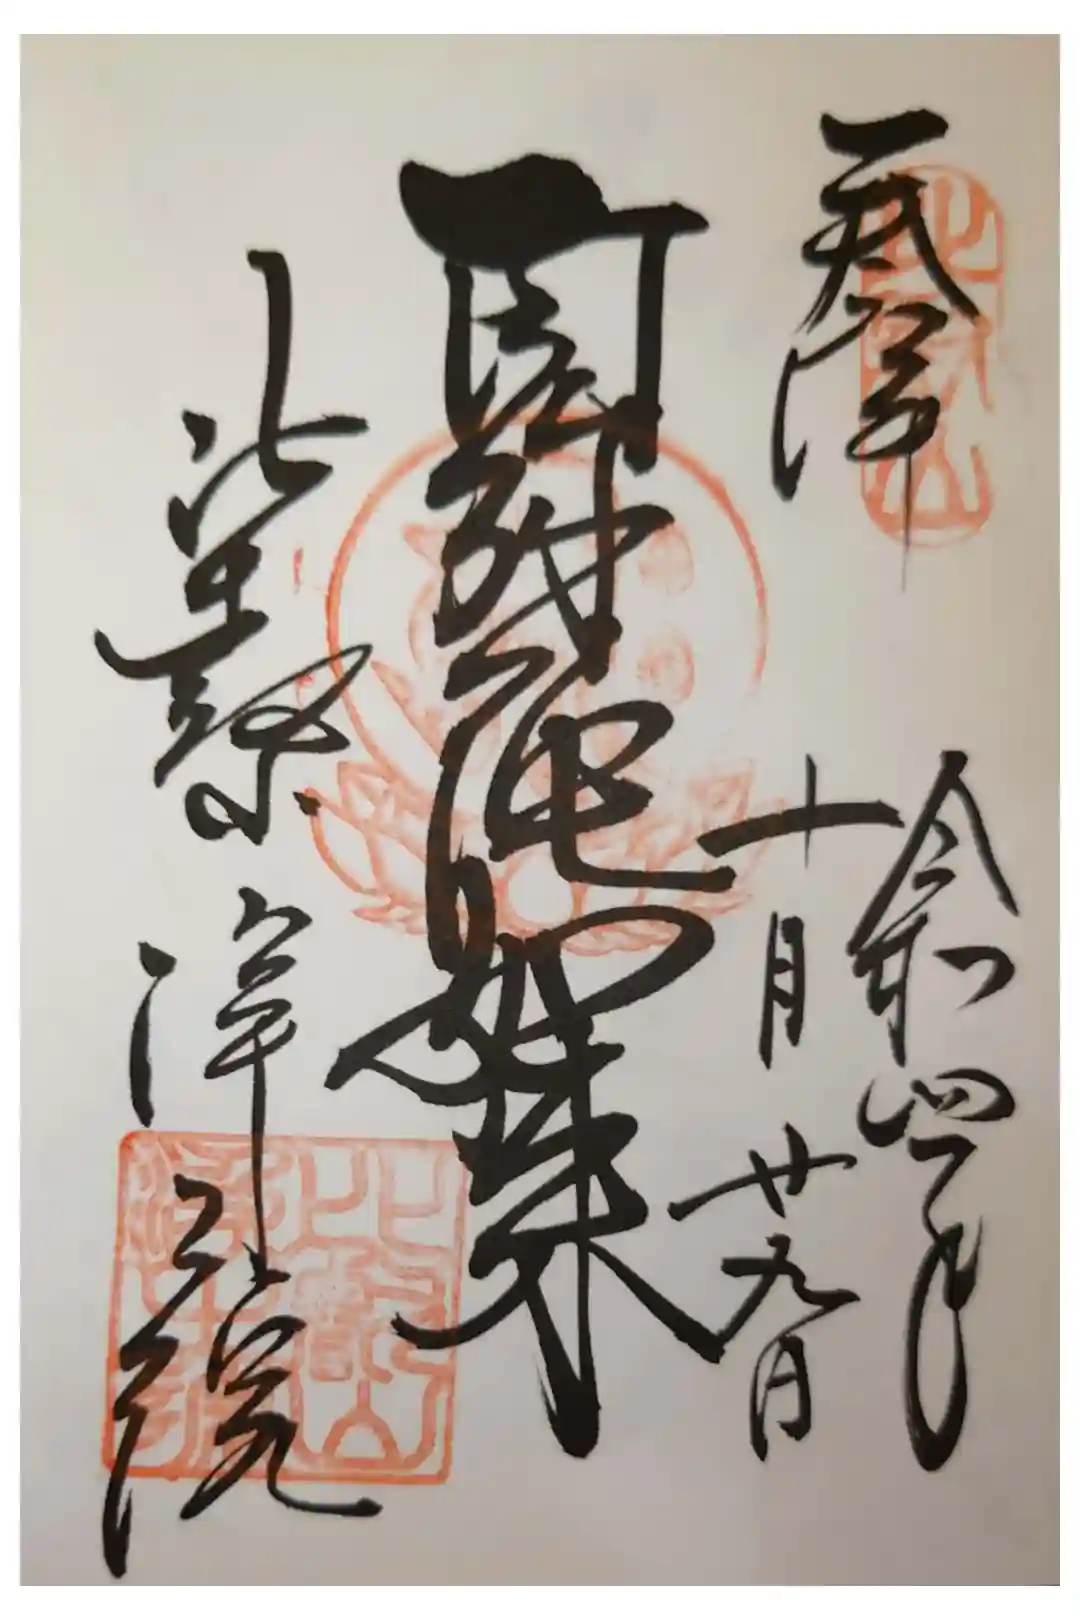 奉拝
令和四年
十月廿九日
阿弥陀如来
比叡山
浄土院